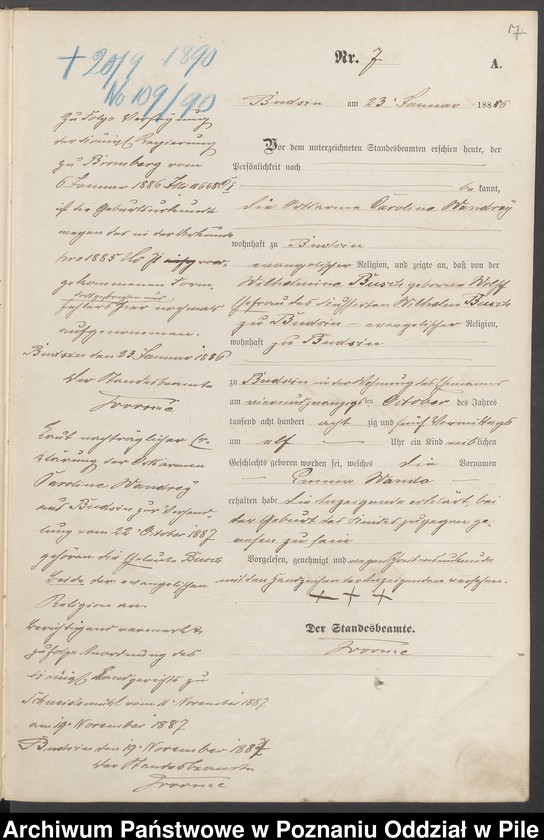 7
+ 20/9 1890
No 109/90
Nr. 7
A.
Budsin am 23. Januar 1886
Zu Folge Verfügung
der Königl. Regierung
zu Bromberg vom
6 Januar 1886
ist die Geburtsurkunde
wegen des in der Urkunde
pro 1885 No
gekommenen Form-
fehlers hier nochmals
aufgenommen.
Budsin den 23. Januar 1886
Der Standesbeamte
Laut nachträglicher Er-
klärung der Ortsarmen
Caroline Wandrey
aus Budsin zur Verhand-
lung vom 22. October 1887
gehören die Eheleute Busch
beide der evangelischen
Religion an.
Berichtigend vermerkt
zufolge Anordnung des
Königl. Landgerichts zu
Schneidemühl vom 11. November 1887
am 19. November 1887
Budsin den 19. November 1887
Der Standesbeamte
Vor dem unterzeichneten Standesbeamten erschien heute, der
Persönlichkeit nach
bekannt,
die Ortsarme Caroline Wandrey
wohnhaft zu Budsin
evangelischer Religion, und zeigte an, daß von der
Wilhelmine Busch geborene Wolff
Ehefrau des Wilhelm Busch
zu Budsin evangelischer Religion,
wohnhaft zu Budsin
zu Budsin in der Wohnung des Ehemannes
am vierundzwanzigsten October des Jahres
tausend acht hundert achtzig und fünf Vormittags
um elf Uhr ein Kind weiblichen
Geschlechts geboren worden sei, welches die Vornamen
Emma Wanda
erhalten habe. Die Anzeigende erklärt, bei
der Geburt des Kindes zugegen ge-
wesen zu sein
Vorgelesen, genehmigt und wegen Schreibensunkunde
mit den Handzeichen der Anzeigenden versehen.
+ + +
Der Standesbeamte.
Archiwum Państwowe w Poznaniu Oddział w Pile